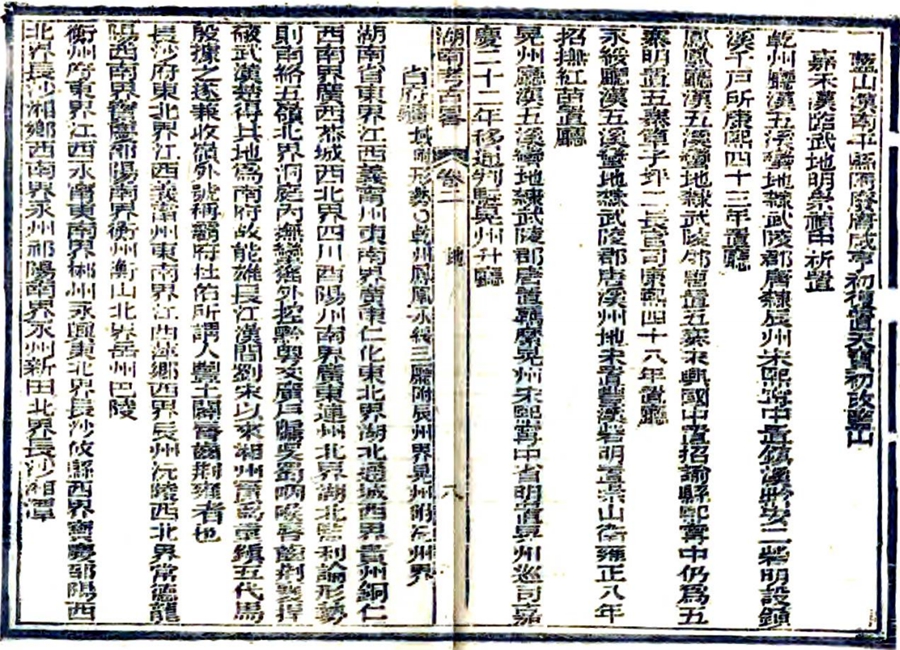 藍山漢南平縣隋廢唐咸亨初復置天寶初改藍山
嘉禾漢臨武地明崇禎中析置
乾州廳漢五溪蠻地隸武陵郡唐隸辰州宋熙寧中置鎮溪黔安二砦明設鎮
溪千戶所康熙四十三年置廳
鳳凰廳漢五溪蠻地隸武陵郡唐置五寨宋興國中置招諭縣熙寧中仍為五
寨明置五寨簞子坪二長官司康熙四十八年置廳
永綏廳漢五溪蠻地隸武陵郡唐溪州地宋置豐溪砦明置崇山衛雍正八年
招撫紅苗置廳
晃州廳漢五溪蠻地隸武陵郡唐置羈縻晃州宋熙寧中省明置晃州巡司嘉
慶二十二年移通判駐晃州升廳
湖南考古畧 卷二 地 八
省府疆域附形勢○乾州鳳凰永綏三廳附辰州界晃州附沅州界
湖南省東界江西義甯州東南界廣東仁化東北界湖北通城西界貴州銅仁
西南界廣西恭城西北界四川酉陽州南界廣東連州北界湖北監利論形勢
則南絡五嶺北界洞庭內撫蠻猺外控黔粵交廣戶牖吳蜀咽喉脣齒荊襄捍
蔽武漢楚得其地為南府故能雄長江漢間劉宋以來湘州嘗為重鎮五代馬
殷據之遂兼收嶺外號稱霸府杜佑所謂人豐土闢脣齒荊雍者也
長沙府東北界江西義甯州東南界江西萍鄉西界辰州沅陵西北界常德龍
陽西南界寶慶邵陽南界衡州衡山北界岳州巴陵
衡州府東界江西永甯東南界郴州永興東北界長沙攸縣西界寶慶邵陽西
北界長沙湘鄉西南界永州祁陽南界永州新田北界長沙湘潭